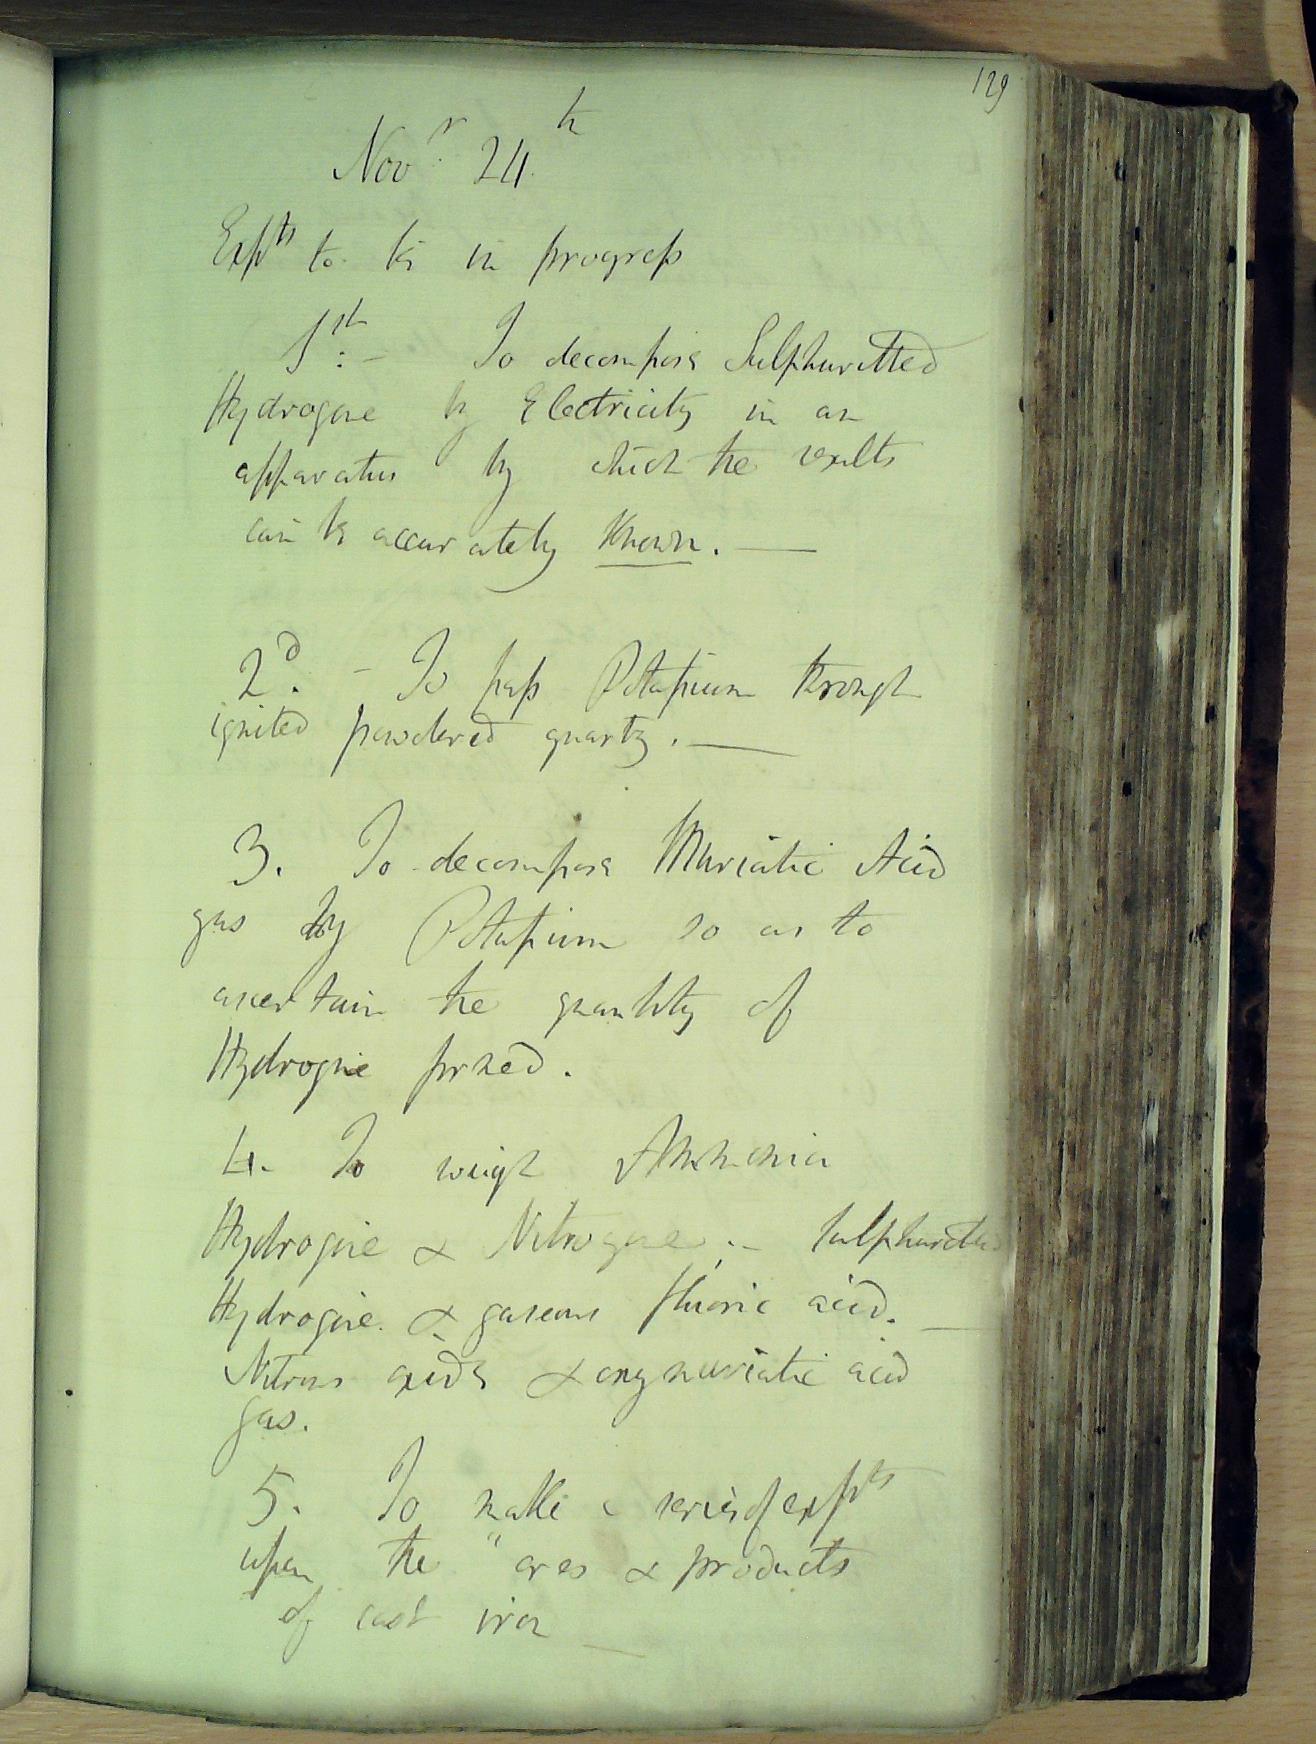 129
Novr. 24th
Expts to be in progress
1st:- To decompose Sulphuretted
Hydrogene by Electricity in an
apparatus by which the results
can be accurately known. —
2d. - To pass Potassium through
ignited powdered quartz. —
3. To decompose Muriatic Acid
gas by Potassium so as to
ascertain the quantity of
Hydrogene formed.
4. To weigh Ammonia
Hydrogene & Nitrogene; - Sulphuretted
Hydrogene. & gaseous fluoric acid. —
Nitrous oxide & oxymuriatic acid
gas.
5. To make a series of expts
upon the " ores & products
of cast iron —